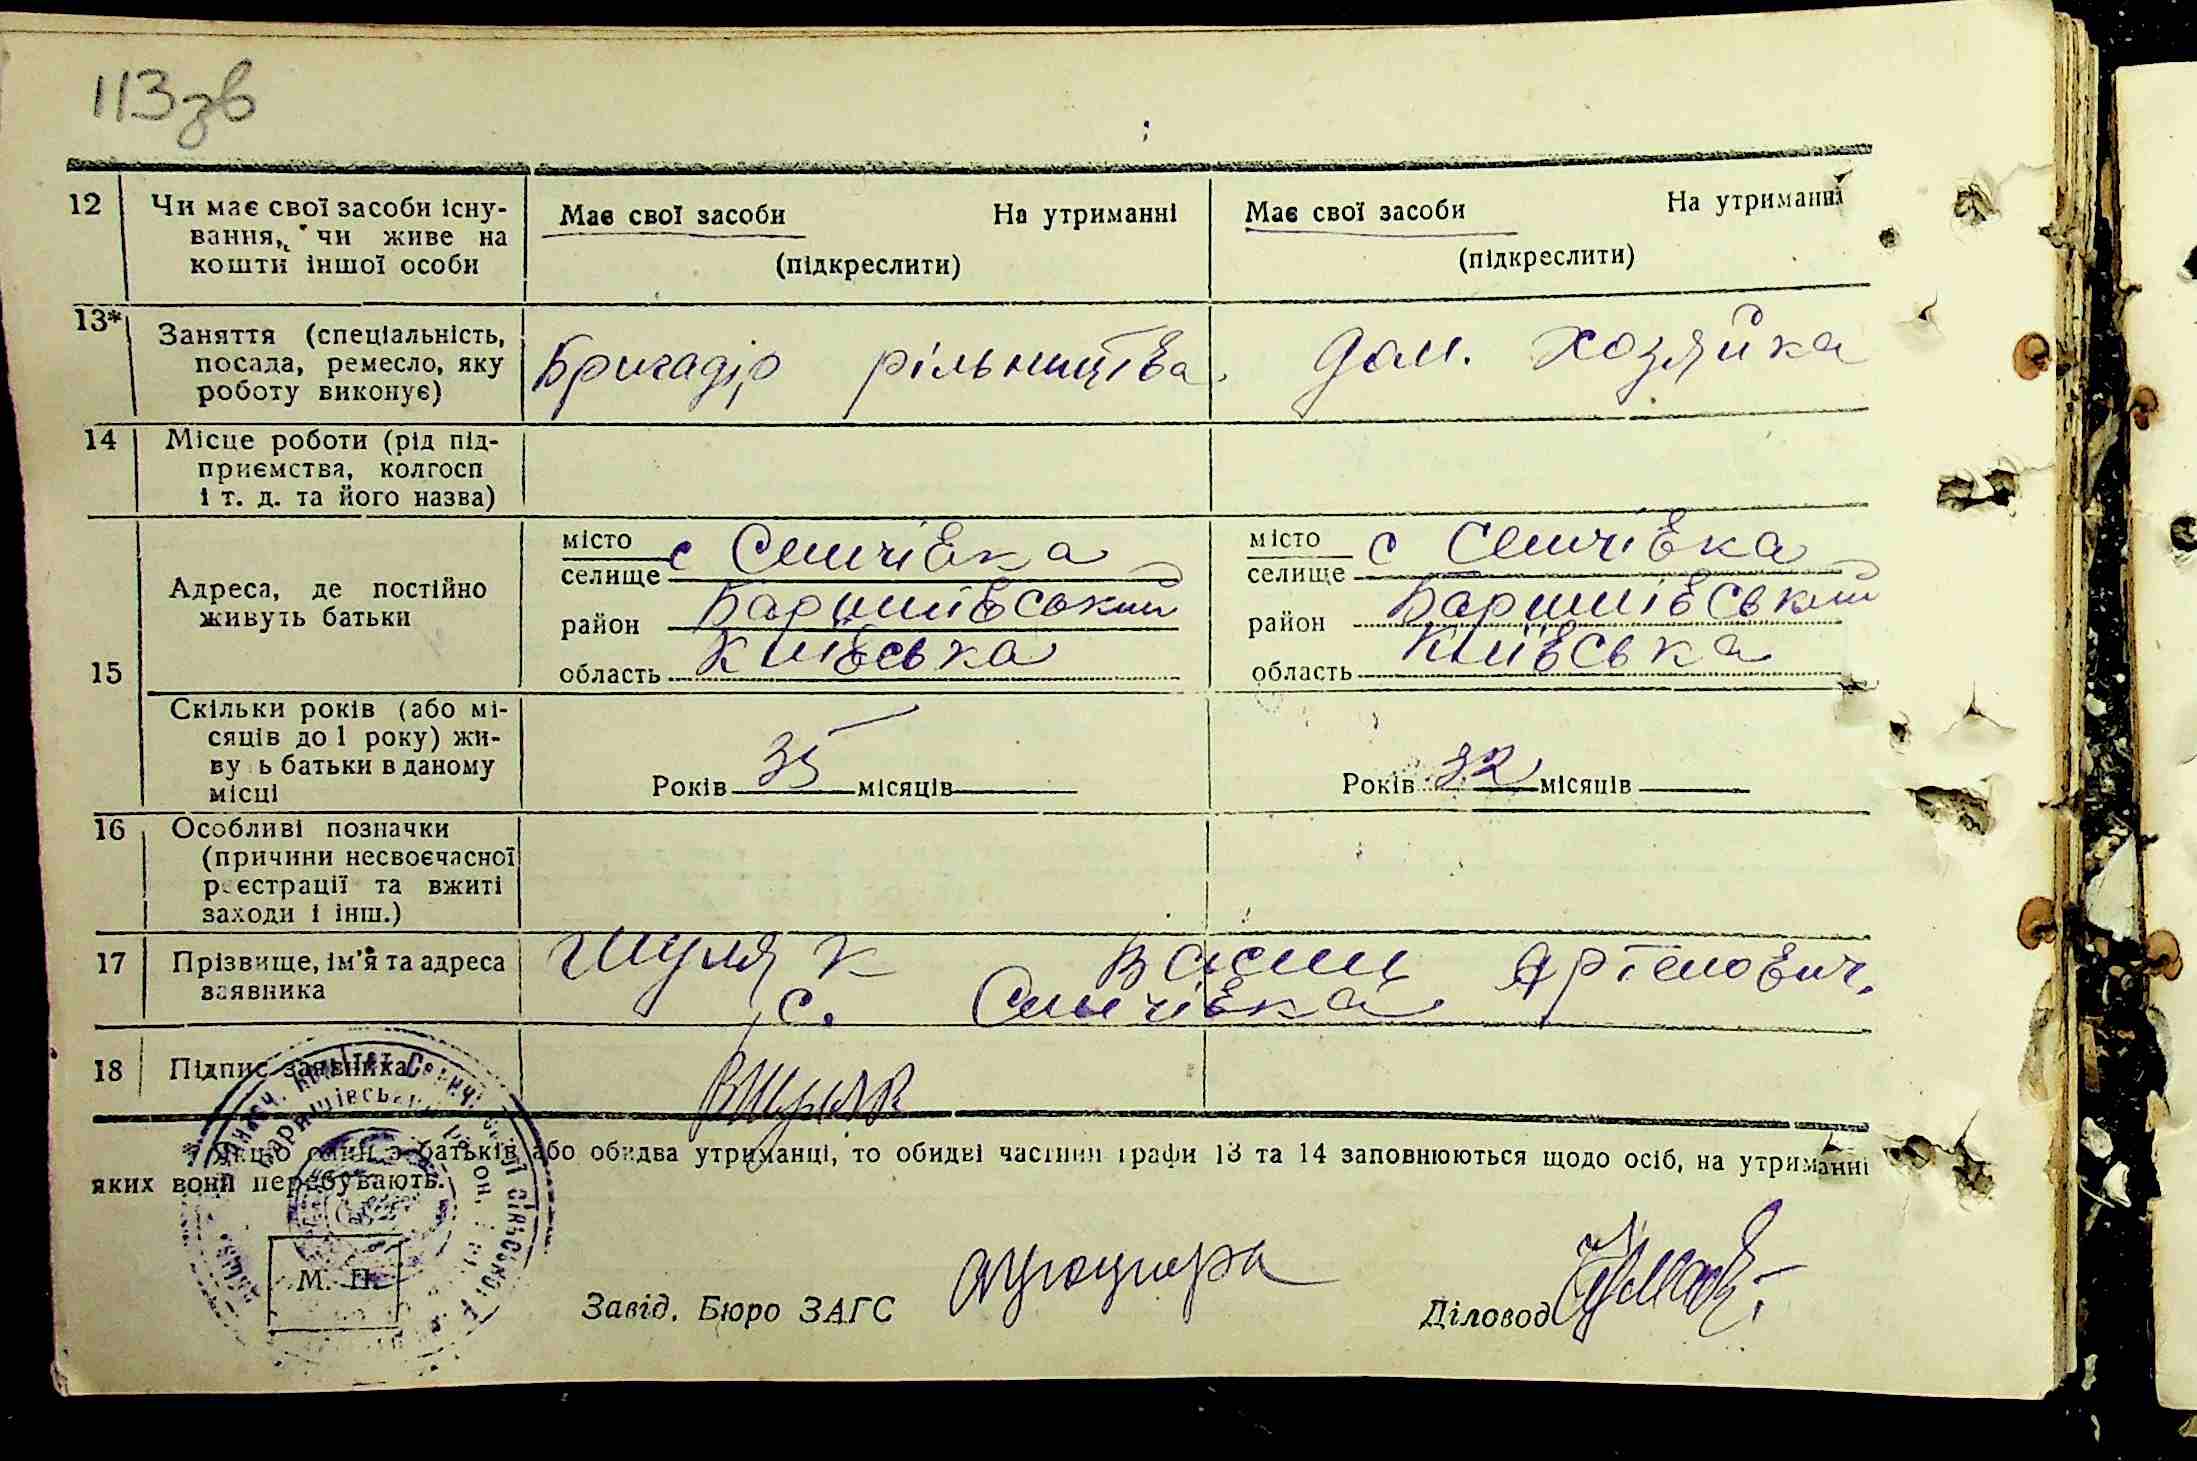 113зв
12 Чи має свої засоби існу-
вання, чи живе на
кошти іншої особи
Має свої засоби На утриманні
(підкреслити)
Має свої засоби На утриманні
(підкреслити)
13* Заняття (спеціальність,
посада, ремесло, яку
роботу виконує)
Бригадір рільництва.
Дом. хозяйка
14 Місце роботи (рід під-
приємства, колгосп
і т. д. та його назва)
15
Адреса, де постійно
живуть батьки
місто
селище с Семчівка
район Баришівський
область Київська
місто
селище с Семчівка
район Баришівський
область Київська
Скільки років (або мі-
сяців до 1 року) жи-
ву ь батьки в даному
місці
Років 35 місяців
Років 32 місяців
16 Особливі позначки
(причини несвоєчасної
реєстрації та вжиті
заходи і інш.)
17 Прізвище, ім'я та адреса
заявника
Шуляк Васил Артемович.
с.
18 Підпис заявника
ВШуляк
* Якщо один з батьків або обидва утриманці, то обидві частини графи 13 та 14 заповнюються щодо осіб, на утриманні
яких вони перебувають.
М. П.
Завід. Бюро ЗАГС
Діловод